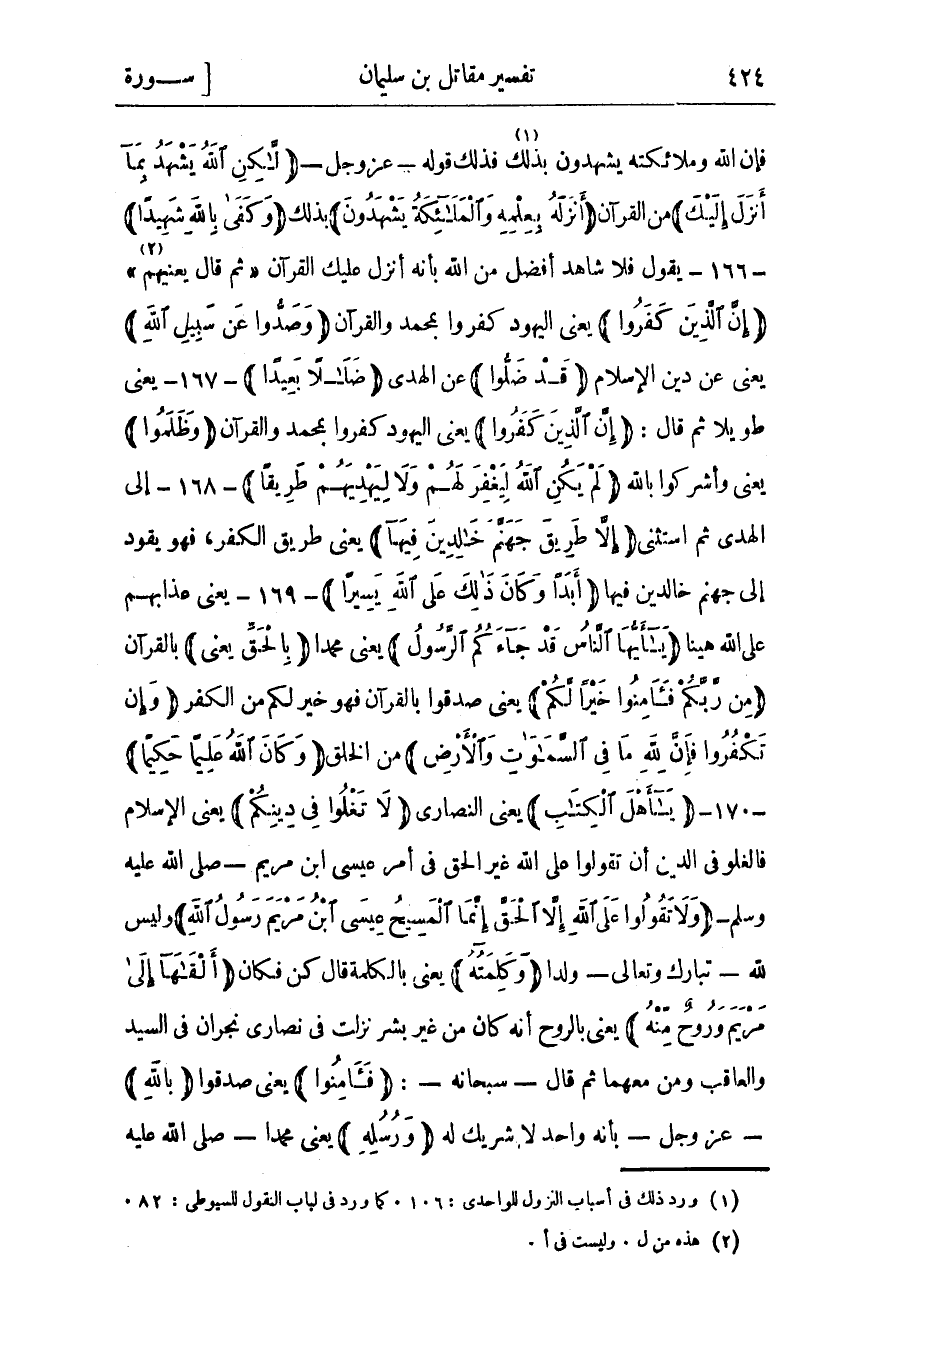 ٤٢٤ تفسير مقاتل بن سليمان [ ســورة
فإن الله وملائكته يشهدون بذلك (١) فذلك قوله — عز وجل — ﴿ لَّٰكِنِ ٱللَّهُ يَشْهَدُ بِمَآ
أَنزَلَ إِلَيْكَ ﴾ من القرآن ﴿ أَنزَلَهُ بِعِلْمِهِ وَٱلْمَلَٰٓئِكَةُ يَشْهَدُونَ ﴾ بذلك ﴿ وَكَفَىٰ بِٱللَّهِ شَهِيدًا ﴾
– ١٦٦ – يقول فلا شاهد أفضل من الله بأنه أنزل عليك القرآن « ثم قال يعنيهم » (٢)
﴿ إِنَّ ٱلَّذِينَ كَفَرُوا ﴾ يعنى اليهود كفروا بمحمد والقرآن ﴿ وَصَدُّوا عَن سَبِيلِ ٱللَّهِ ﴾
يعنى عن دين الإسلام ﴿ قَـدْ ضَلُّوا ﴾ عن الهدى ﴿ ضَلَٰـلًا بَعِيدًا ﴾ – ١٦٧ – يعنى
طويلا ثم قال : ﴿ إِنَّ ٱلَّذِينَ كَفَرُوا ﴾ يعنى اليهود كفروا بمحمد والقرآن ﴿ وَظَلَمُوا ﴾
يعنى وأشركوا بالله ﴿ لَمْ يَكُنِ ٱللَّهُ لِيَغْفِرَ لَهُـمْ وَلَا لِيَهْدِيَهُـمْ طَرِيقًا ﴾ – ١٦٨ – إلى
الهدى ثم استثنى ﴿ إِلَّا طَرِيقَ جَهَنَّمَ خَٰلِدِينَ فِيهَآ ﴾ يعنى طريق الكفر، فهو يقود
إلى جهنم خالدين فيها ﴿ أَبَدًا وَكَانَ ذَٰلِكَ عَلَى ٱللَّهِ يَسِيرًا ﴾ – ١٦٩ – يعنى عذابهـم
على الله هينا ﴿ يَـٰٓأَيُّهَا ٱلنَّاسُ قَدْ جَآءَكُمُ ٱلرَّسُولُ ﴾ يعنى محمدا ﴿ بِٱلْحَقِّ يعنى ﴾ بالقرآن
﴿ مِن رَّبِّكُمْ فَـَٔامِنُوا خَيْرًا لَّكُمْ ﴾ يعنى صدقوا بالقرآن فهو خير لكم من الكفر ﴿ وَإِن
تَكْفُرُوا فَإِنَّ لِلَّهِ مَا فِى ٱلسَّمَٰوَٰتِ وَٱلْأَرْضِ ﴾ من الخلق ﴿ وَكَانَ ٱللَّهُ عَلِيمًا حَكِيمًا ﴾
– ١٧٠ – ﴿ يَـٰٓأَهْلَ ٱلْكِتَٰبِ ﴾ يعنى النصارى ﴿ لَا تَغْلُوا فِى دِينِكُمْ ﴾ يعنى الإسلام
فالغلو فى الدين أن تقولوا على الله غير الحق فى أمر عيسى ابن مريم — صلى الله عليه
وسلم — ﴿ وَلَا تَقُولُوا عَلَى ٱللَّهِ إِلَّا ٱلْحَقَّ إِنَّمَا ٱلْمَسِيحُ عِيسَى ٱبْنُ مَرْيَمَ رَسُولُ ٱللَّهِ ﴾ وليس
لله — تبارك وتعالى — ولدا ﴿ وَكَلِمَتُهُٓ ﴾ يعنى بالكلمة قال كن فكان ﴿ أَلْقَىٰهَآ إِلَىٰ
مَرْيَمَ وَرُوحٌ مِّنْهُ ﴾ يعنى بالروح أنه كان من غير بشر نزلت فى نصارى نجران فى السيد
والعاقب ومن معهما ثم قال — سبحانه — : ﴿ فَـَٔامِنُوا ﴾ يعنى صدقوا ﴿ بِٱللَّهِ ﴾
— عز وجل — بأنه واحد لا شريك له ﴿ وَرُسُلِهِ ﴾ يعنى محمدا — صلى الله عليه
(١) ورد ذلك فى أسباب النزول للواحدى : ١٠٦ . كما ورد فى لباب النقول للسيوطى : ٨٢ .
(٢) هذه من ل . وليست فى أ .